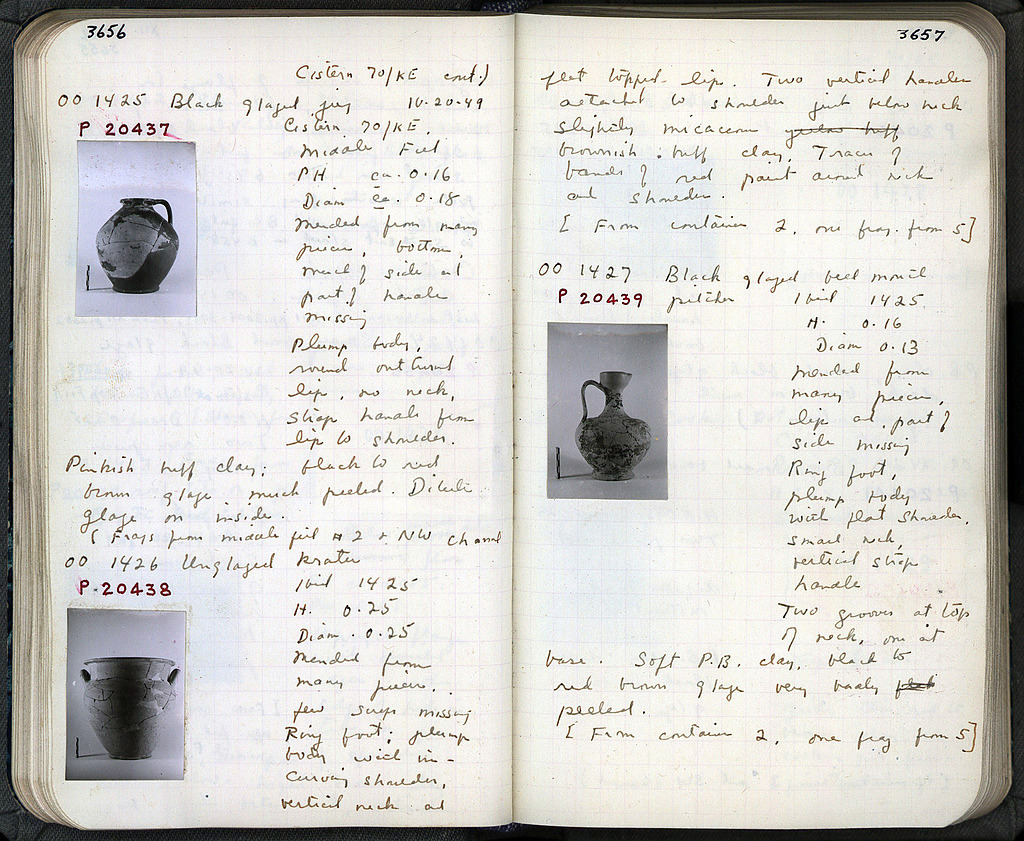 3656
Cistern 70/KE cont.)
OO 1425 Black glazed jug 10.20.49
P 20437
Cistern 70/KE.
Middle Fill
PH ca. 0.16
Diam ca. 0.18
Mended from many
pieces, bottom,
much of side and
part of handle
missing
Plump body,
round outturned
lip, no neck,
strap handle from
lip to shoulder.
Pinkish buff clay; black to red
brown glaze much peeled. Dilute
glaze on inside.
( Frags from middle fill # 2 + NW channel
OO 1426 Unglazed krater
P 20438
Ibid 1425
H. 0.25
Diam. 0.25
Mended from
many pieces.
few scraps missing
Ring foot; plump
body with in-
curving shoulder,
vertical neck and
3657
flat topped lip. Two vertical handles
attached to shoulder just below neck
slightly micaceous yellow buff
brownish buff clay. Traces of
bands of red paint around neck
and shoulder.
[ From container 2, one frag. from 5]
OO 1427 Black glazed bell mouth
P 20439 pitcher Ibid 1425
H. 0.16
Diam 0.13
Mended from
many pieces,
lip and part of
side missing
Ring foot,
plump body
with flat shoulder,
small neck,
vertical strap
handle
Two grooves at top
of neck, one at
base. Soft P.B. clay, black to
red brown glaze very badly
peeled.
[ From container 2, one frag from 5]